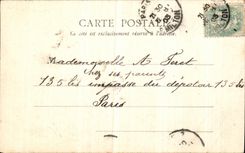 CARTE POSTALE
Ce côté est exclusivement réservé à l'adresse.
Mademoiselle A Feret
chez ses parents
135 bis impasse du dépotoir 135 bis
Paris